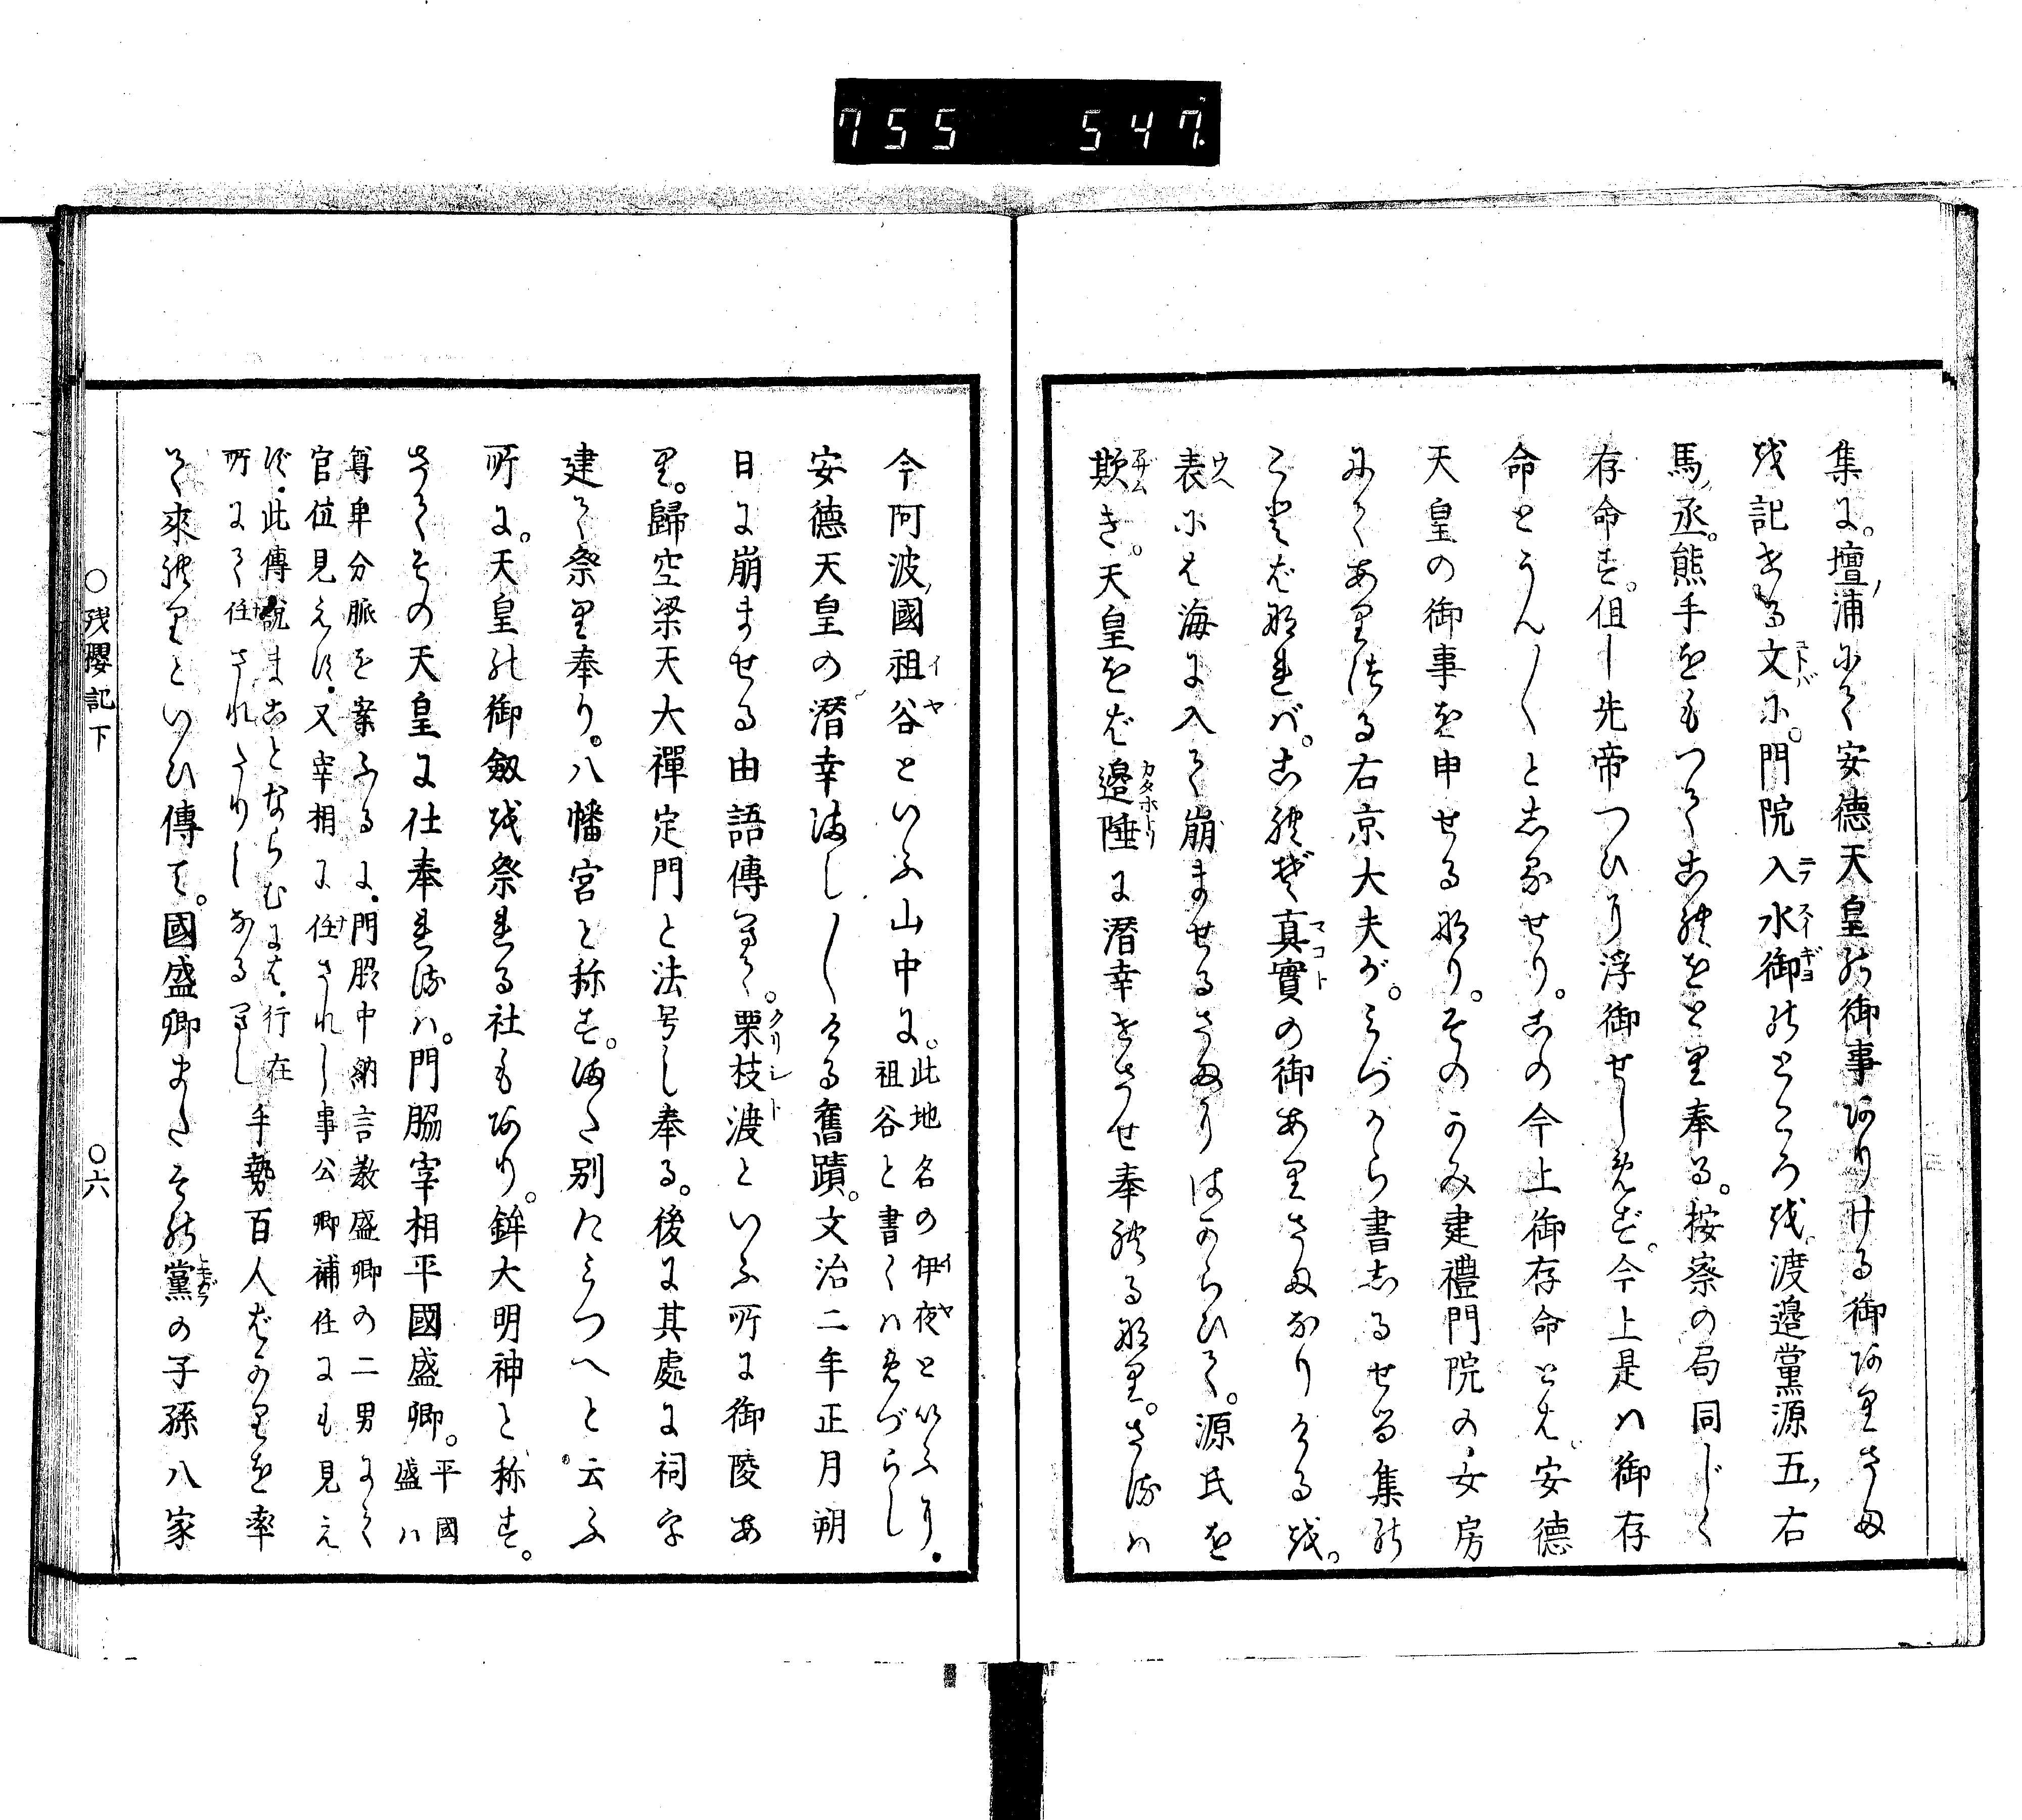 755 547
集に。壇ノ浦にて安徳天皇の御事ありける御ありさま
を記せる文に。門院入水御のところを。渡邉黨源五、右
馬ノ丞。熊手をもつてこれをとり奉る。按察の局同じく
存命す。但し先帝つひに浮御せしめず。今上是ハ御存
命とうん〳〵としるせり。この今上御存命とは。安徳
天皇の御事を申せるなり。そのかみ建禮門院の女房
にてありける右京大夫が。みづから書しるせる集の
ことばなれバ。これぞ真實の御ありさまなりけるを。
表には海に入て崩ませるさまにはからひて。源氏を
欺き。天皇をば邉陲に潜幸せさせ奉れるなり。されハ
今阿波ノ國祖谷といふ山中に。此地名の伊夜といふり.
祖谷と書くハめづらし
安徳天皇の潜幸ましましける舊蹟。文治二年正月朔
日に崩ませる由語傳へて。栗枝渡といふ所に御陵あ
り。歸空梁天大禪定門と法号し奉る。後に其處に祠宇
建て祭り奉り。八幡宮と称す。また別にみつへと云ふ
所に。天皇の御劔を祭れる社もあり。鉾大明神と称す。
さてその天皇に仕奉れるハ。門脇宰相平國盛卿。平國
盛ハ
尊卑分脈を案ふるに.門脇中納言教盛卿の二男にて
官位見えず.又宰相に任されし事公卿補任にも見え
ず.此傳説まことならむには.行在
所にて任されたりしなるべし
手勢百人ばかりを率
て來れりといひ傳て。國盛卿またその黨の子孫八家
○残櫻記下
○六